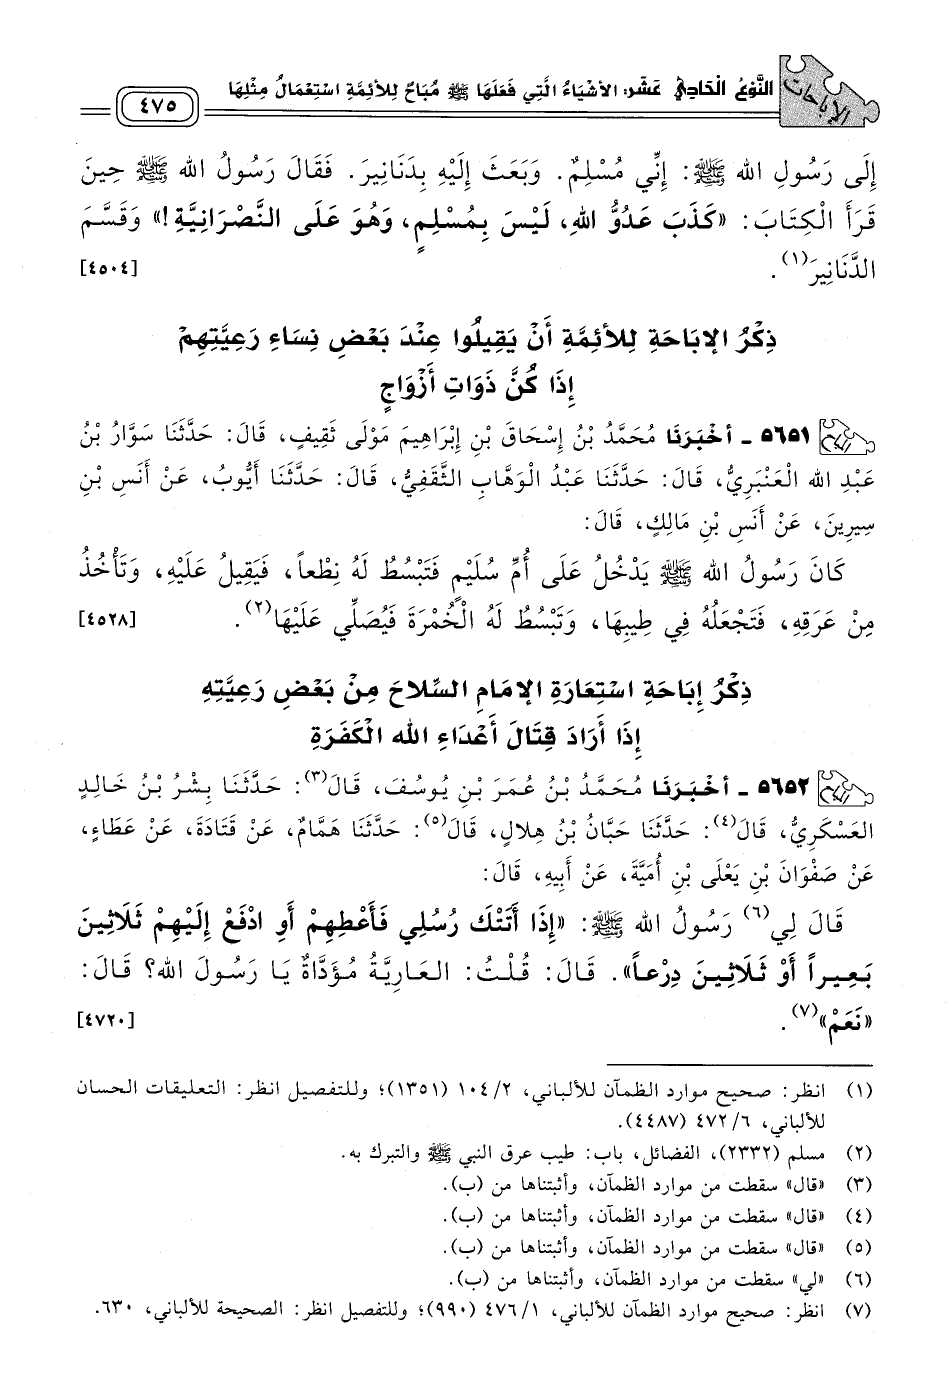 الإباحات
النَّوْعُ الْحَادِي عَشَرَ: الأَشْيَاءُ الَّتِي فَعَلَهَا ﷺ مُبَاحٌ لِلأَئِمَّةِ اسْتِعْمَالُ مِثْلِهَا
٤٧٥
إِلَى رَسُولِ الله ﷺ: إِنِّي مُسْلِمٌ. وَبَعَثَ إِلَيْهِ بِدَنَانِيرَ. فَقَالَ رَسُولُ الله ﷺ حِينَ
قَرَأَ الْكِتَابَ: «كَذَبَ عَدُوُّ اللهِ، لَيْسَ بِمُسْلِمٍ، وَهُوَ عَلَى النَّصْرَانِيَّةِ!» وَقَسَّمَ
الدَّنَانِيرَ(١). [٤٥٠٤]
ذِكْرُ الإبَاحَةِ لِلأَئِمَّةِ أَنْ يَقِيلُوا عِنْدَ بَعْضِ نِسَاءِ رَعِيَّتِهِمْ
إِذَا كُنَّ ذَوَاتِ أَزْوَاجٍ
٥٦٥١ - أَخْبَرَنَا مُحَمَّدُ بْنُ إِسْحَاقَ بْنِ إِبْرَاهِيمَ مَوْلَى ثَقِيفٍ، قَالَ: حَدَّثَنَا سَوَّارُ بْنُ
عَبْدِ الله الْعَنْبَرِيُّ، قَالَ: حَدَّثَنَا عَبْدُ الْوَهَّابِ الثَّقَفِيُّ، قَالَ: حَدَّثَنَا أَيُّوبُ، عَنْ أَنَسِ بْنِ
سِيرِينَ، عَنْ أَنَسِ بْنِ مَالِكٍ، قَالَ:
كَانَ رَسُولُ الله ﷺ يَدْخُلُ عَلَى أُمِّ سُلَيْمٍ فَتَبْسُطُ لَهُ نِطْعاً، فَيَقِيلُ عَلَيْهِ، وَتَأْخُذُ
مِنْ عَرَقِهِ، فَتَجْعَلُهُ فِي طِيبِهَا، وَتَبْسُطُ لَهُ الْخُمْرَةَ فَيُصَلِّي عَلَيْهَا(٢). [٤٥٢٨]
ذِكْرُ إِبَاحَةِ اسْتِعَارَةِ الإمَامِ السِّلاحَ مِنْ بَعْضِ رَعِيَّتِهِ
إِذَا أَرَادَ قِتَالَ أَعْدَاءِ الله الْكَفَرَةِ
٥٦٥٢ - أَخْبَرَنَا مُحَمَّدُ بْنُ عُمَرَ بْنِ يُوسُفَ، قَالَ(٣): حَدَّثَنَا بِشْرُ بْنُ خَالِدٍ
العَسْكَرِيُّ، قَالَ(٤): حَدَّثَنَا حَبَّانُ بْنُ هِلالٍ، قَالَ(٥): حَدَّثَنَا هَمَّامٌ، عَنْ قَتَادَةَ، عَنْ عَطَاءٍ،
عَنْ صَفْوَانَ بْنِ يَعْلَى بْنِ أُمَيَّةَ، عَنْ أَبِيهِ، قَالَ:
قَالَ لِي(٦) رَسُولُ الله ﷺ: «إِذَا أَتَتْكَ رُسُلِي فَأَعْطِهِمْ أَوِ ادْفَعْ إِلَيْهِمْ ثَلَاثِينَ
بَعِيراً أَوْ ثَلَاثِينَ دِرْعاً». قَالَ: قُلْتُ: العَارِيَّةُ مُؤَدَّاةٌ يَا رَسُولَ الله؟ قَالَ:
«نَعَمْ»(٧). [٤٧٢٠]
(١) انظر: صحيح موارد الظمآن للألباني، ٢/ ١٠٤ (١٣٥١)؛ وللتفصيل انظر: التعليقات الحسان
للألباني، ٦/ ٤٧٢ (٤٤٨٧).
(٢) مسلم (٢٣٣٢)، الفضائل، باب: طيب عرق النبي ﷺ والتبرك به.
(٣) «قال» سقطت من موارد الظمآن، وأثبتناها من (ب).
(٤) «قال» سقطت من موارد الظمآن، وأثبتناها من (ب).
(٥) «قال» سقطت من موارد الظمآن، وأثبتناها من (ب).
(٦) «لي» سقطت من موارد الظمآن، وأثبتناها من (ب).
(٧) انظر: صحيح موارد الظمآن للألباني، ١/ ٤٧٦ (٩٩٠)؛ وللتفصيل انظر: الصحيحة للألباني، ٦٣٠.